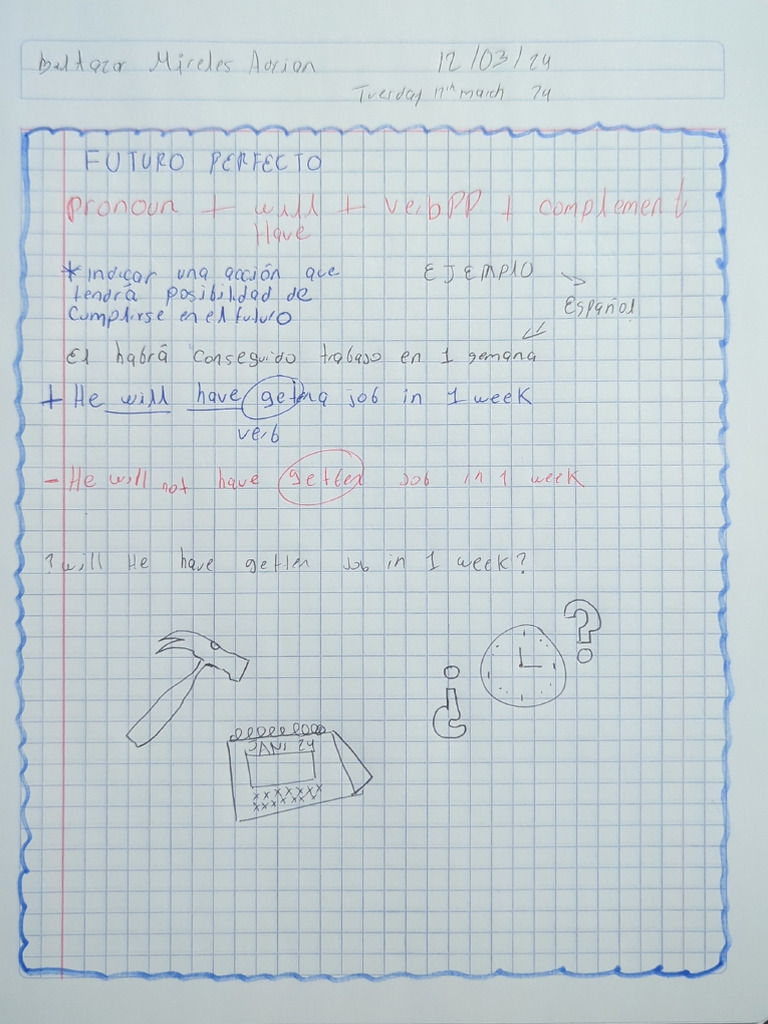 Baltazar Mireles Adrian 12/03/24
Tuesday 12th march 24
FUTURO PERFECTO
pronoun + will + verbPP + complement
Have
*indicar una acción que
tendrá posibilidad de
cumplirse en el futuro
EJEMPLO
Español
El habrá conseguido trabajo en 1 semana
+ He will have getting job in 1 week
verb
- He will not have getten job in 1 week
? will He have getten job in 1 week?
JANI 24